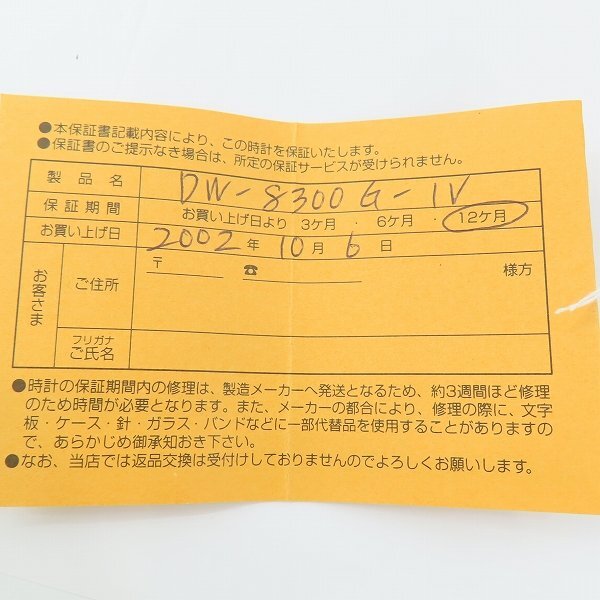 ●本保証書記載内容により、この時計を保証いたします。
●保証書のご提示なき場合は、所定の保証サービスが受けられません。
製品名 DW-8300G-1V
保証期間 お買い上げ日より 3ケ月 ・ 6ケ月 ・ 12ケ月
お買い上げ日 2002年 10月 6日
お客さま
ご住所 〒 ☎ 様方
フリガナ
ご氏名
●時計の保証期間内の修理は、製造メーカーへ発送となるため、約3週間ほど修理
のため時間が必要となります。また、メーカーの都合により、修理の際に、文字
板・ケース・針・ガラス・バンドなどに一部代替品を使用することがありますの
で、あらかじめ御承知おき下さい。
●なお、当店では返品交換は受付けしておりませんのでよろしくお願いします。